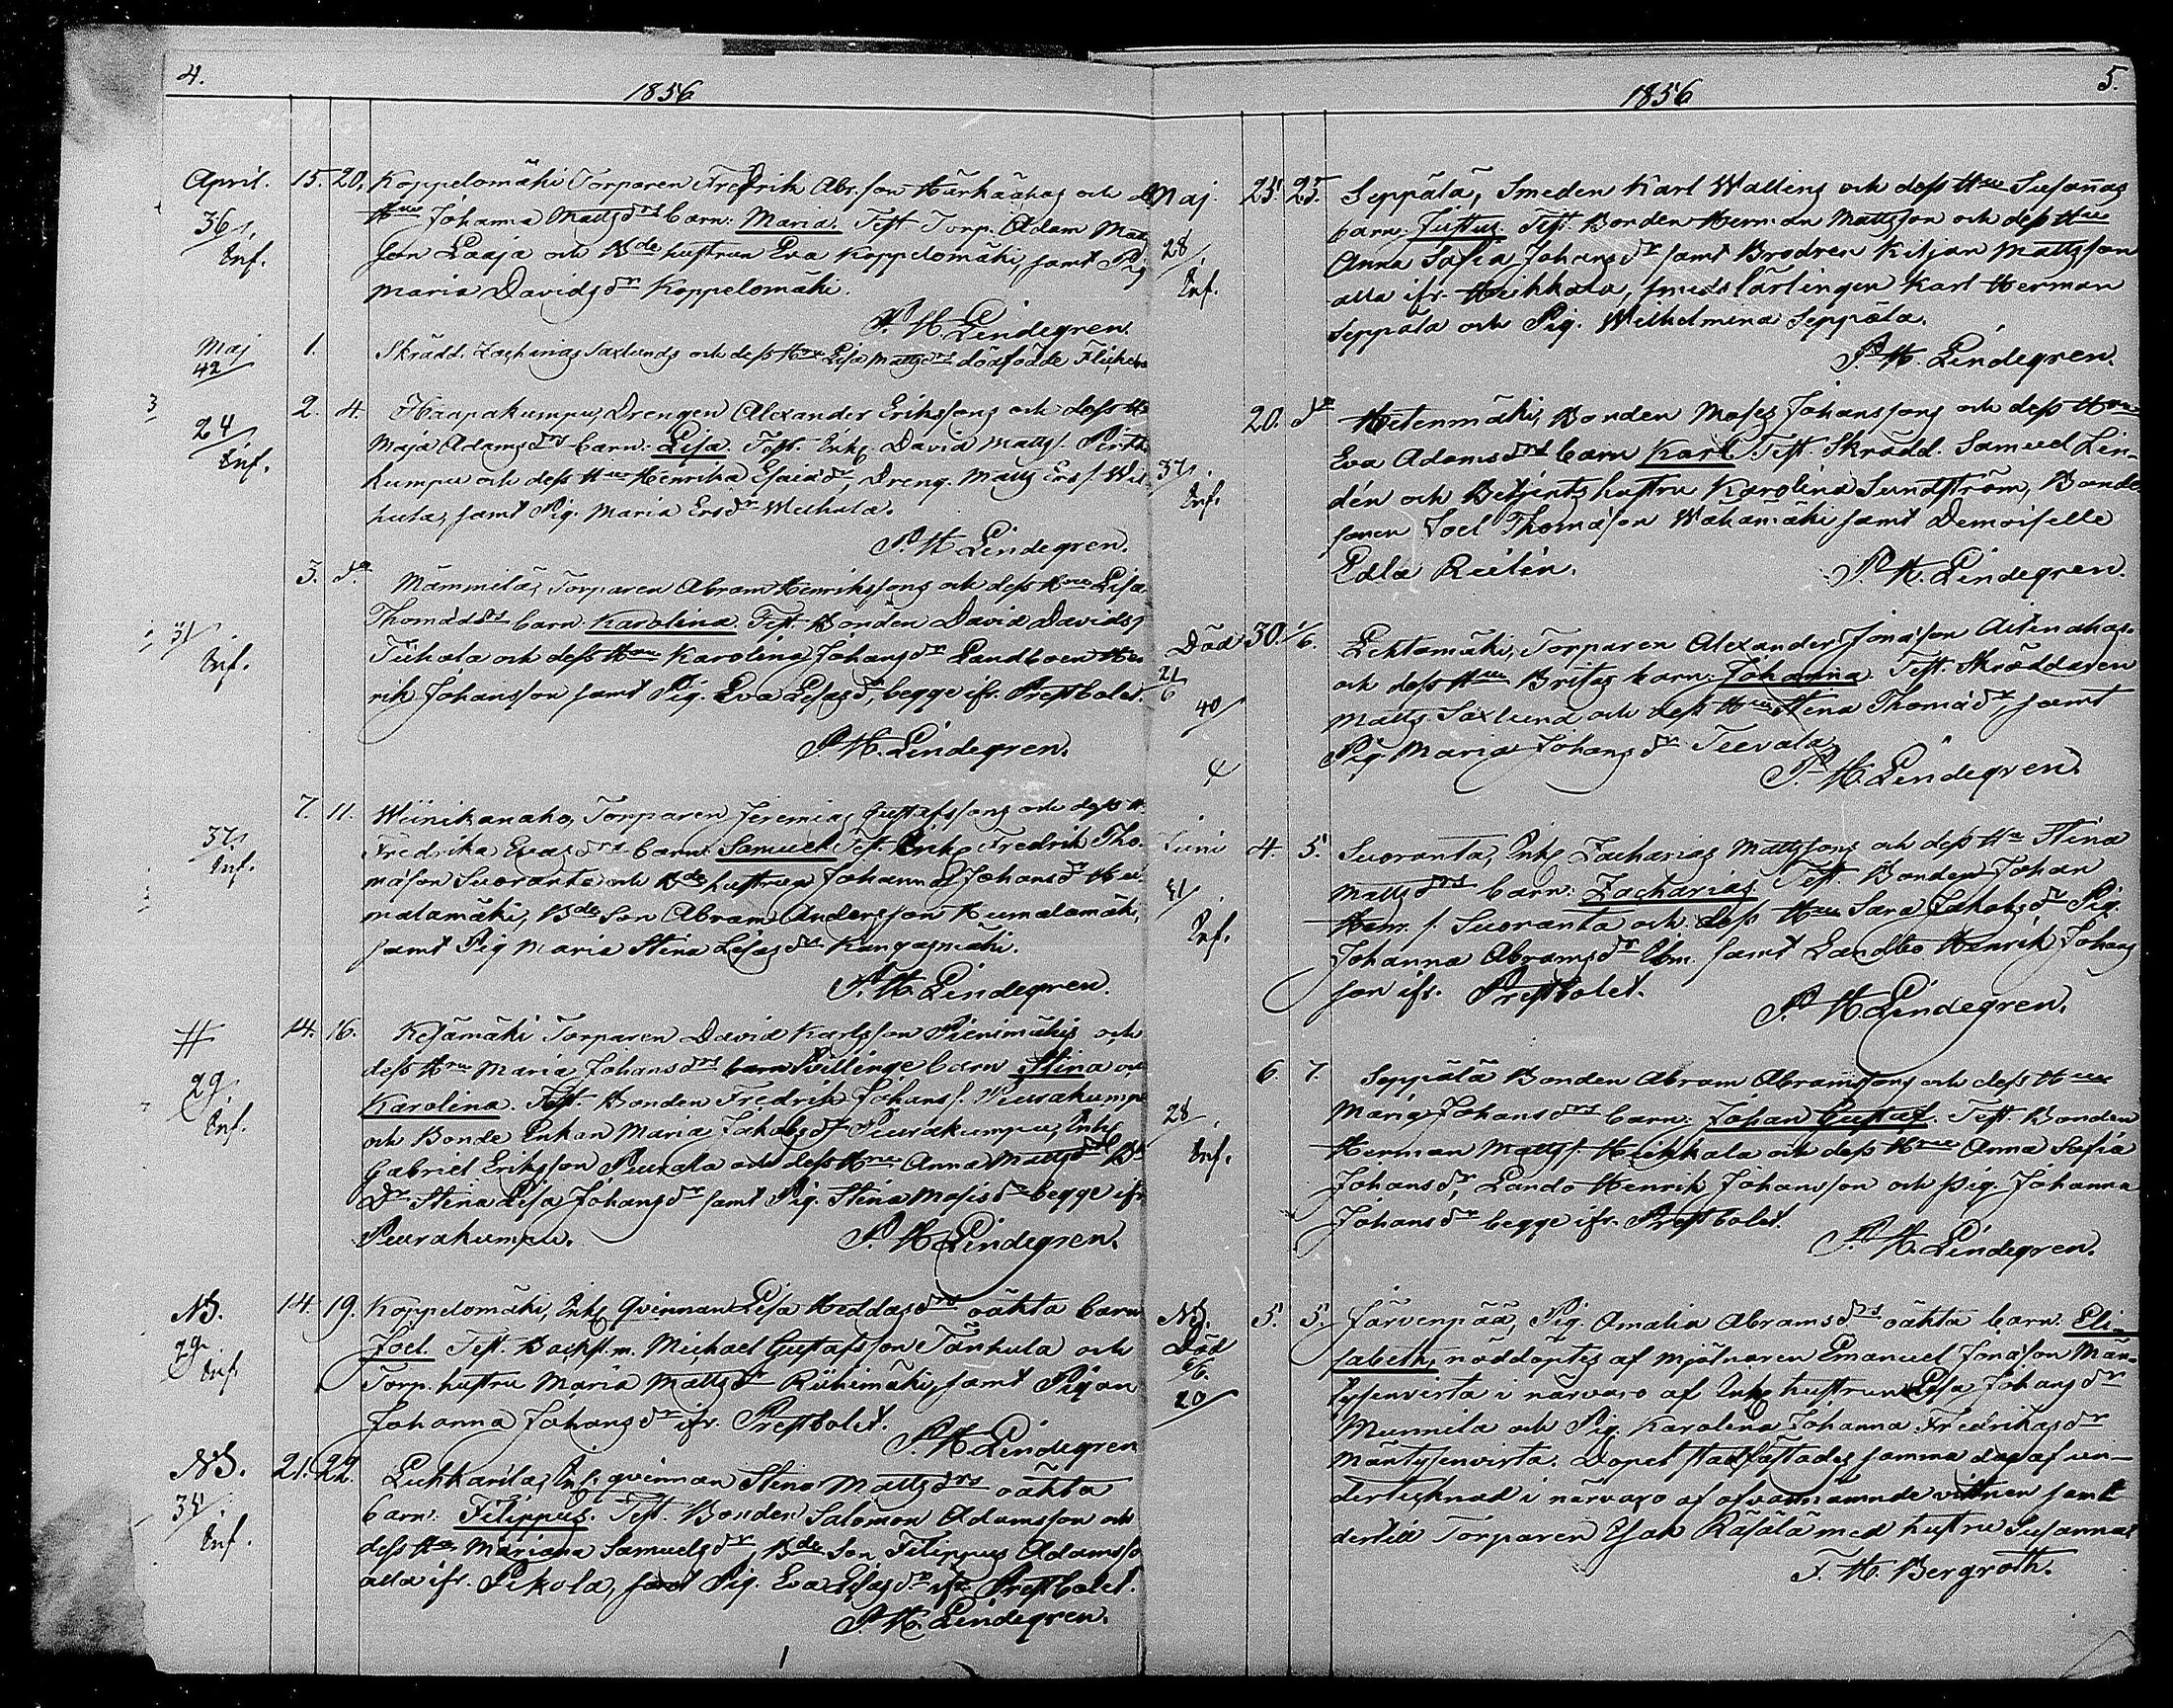 4.
1856
April. 15. 20. Koppelomäki Torparen Fredrik Abr.son Härkäahos och dess
36/. Hru Johanna Mattsdrs barn: Maria. Test Torp. Adam Matts
Inf. son Laaja och Bde hustrun Eva Koppelomäki, samt Pig
Maria Davidsdr Koppelomäki.
P. H. Lindegren.
Maj 1. Skrädd. Zacharias Saxlunds och dess Hru Lisa Mattsdrs dödfödde Flicke
42
2. 4. Haapakumpu, Drengen Alexander Erikssons och dess H.
24/ Maja Adamsdrs barn: Lisa. Test. Inh. David Matts. Pirtti
Inf. kumpu och dess Hru Henrika Esaiædr, Dreng. Matts Ers s. Wil
hula, samt Pig. Maria Ersdr Wilhula.
P. H. Lindegren.
3. do Mämmilä, Torparen Abram Henrikssons och dess Hru Lisa
31/ Thomædrs barn: Karolina. Test. Bonden David Davids s.
Inf. Tiihala och dess Hru Karolina Johansdr Landboen Hen
rik Johansson samt Pig. Eva Lisasdr, begge ifr. Prestbolet.
P. H. Lindegren.
7. 11. Wiinikanaho, Torparen Jeremias Gustafssons och dess H.
37/. Fredrika Evasdrs barn: Samuel Test. Inh. Fredrik Tho
Inf. mason Suoranta och Bde hustrun Johanna Johansdr Hu
malamäki, Bde Son Abram Andersson Humalamäki,
samt Pig Maria Stina Lisasdr Kangasmäki.
P. H. Lindegren.
# 14. 16. Kesämäki Torparen David Karlsson Pienimäkis och
29/ dess Hru Maria Johansdrs barn Tvillinge barn Stina och
Inf. Karolina. Test. Bonden Fredrik Johans s. Peurakumpu
och Bonde Enkan Maria Jakobsdr Peurakumpu, Inh.
Gabriel Eriksson Peurala och dess Hru Anna Mattsdr Bde
Dr Stina Lisa Johansdr samt Pig. Stina Mosisdr begge ifr
Peurakumpu. P. H. Lindegren.
NB. 14. 19. Koppelomäki, Inh. Qvinnan Lisa Heddasdrs oäkta barn
29 Joel. Test. Backst.m. Michael Gustafsson Tarhula och
Inf Torp. hustru Maria Mattsdr Riihimäki, samt Pigan
Johanna Johansdr ifr. Prestbolet.
P. H. Lindegren
NB. 21. 22. Luhkarila, Inh. qvinnan Stina Mattsdrs oäkta
34/. barn: Filippus. Test. Bonden Salomon Adamsson och
Inf. dess Hru Mariana Samuelsdr, Bde Son Filippus Adamsso
alla ifr. Pikola, samt Pig. Eva Lisasdr ifr. Prestbolet.
P. H. Lindegren.
5.
1856
Maj. 25. 25. Seppälä, Smeden Karl Wallins och dess Hru Susannas
28/. barn: Justus. Test. Bonden Herman Mattsson och dess Hru
Inf. Anna Sofia Johansdr samt Brodren Kiljan Mattsson
alla ifr. Heikkala, smedslärlingen Karl Herman
Seppälä och Pig. Wilhelmina Seppälä.
P. H. Lindegren.
20. do Hetenmäki, Bonden Moses Johanssons och dess Hru
37/. Eva Adamsdrs barn Karl Test. Skrädd. Samuel Lin-
Inf. dén och Betjents hustru Karolina Sundström, Bonde
sonen Joel Thomason Wähämäki samt Demoiselle
Edla Relin. P. H. Lindegren.
Död 30. 1/6. Lehtomäki, Torparen Alexander Jonasson Aitinahos
2/6 och dess Hru Britas barn: Johanna. Test. Skräddaren
40/ Matts Saxlund och dess Hru Stina Thomædr, samt
Pig. Maria Johansdr Teevala.
P. H. Lindegren.
Juni 4. 5. Suoranta, Inh. Zacharias Mattssons och dess Hu Stina
41/. Mattsdrs barn: Zacharias. Test. Bonden Johan
Inf. Henr. s. Suoranta och dess Hru Sara Jakobsdr Pig.
Johanna Abramsdr Ebm. samt Landbo Henrik Johans
son ifr. Prestbolet.
P. H. Lindegren.
6. 7. Seppälä Bonden Abram Abramssons och dess Hru
28/. Maria Johansdrs barn: Johan Gustaf. Test. Bonden
Inf. Herman Matts s. Heikkala och dess Hru Anna Sofia
Johansdr, Lando Henrik Johansson och pig. Johanna
Johansdr begge ifr. Prestbolet.
P. H. Lindegren.
NB. 5. 5. Järvenpää, Pig. Amalia Abramsdrs oäkta barn: Eli-
Död sabeth, nöddöptes af mjölnaren Emanuel Jonasson Män-
/6. tysenvirta i närvaro af Inh. hustrun Lisa Johansdr
20/ Munnila och Pig. Karolina Johanna Fredrikasdr
Mäntysenvirta. Dopet stadfästades samma dag af un-
dertecknad i närvaro af ofvannämnde vittnen samt
dertill Torparen Esak Räsälä med hustru Susanna
F. H. Bergroth.